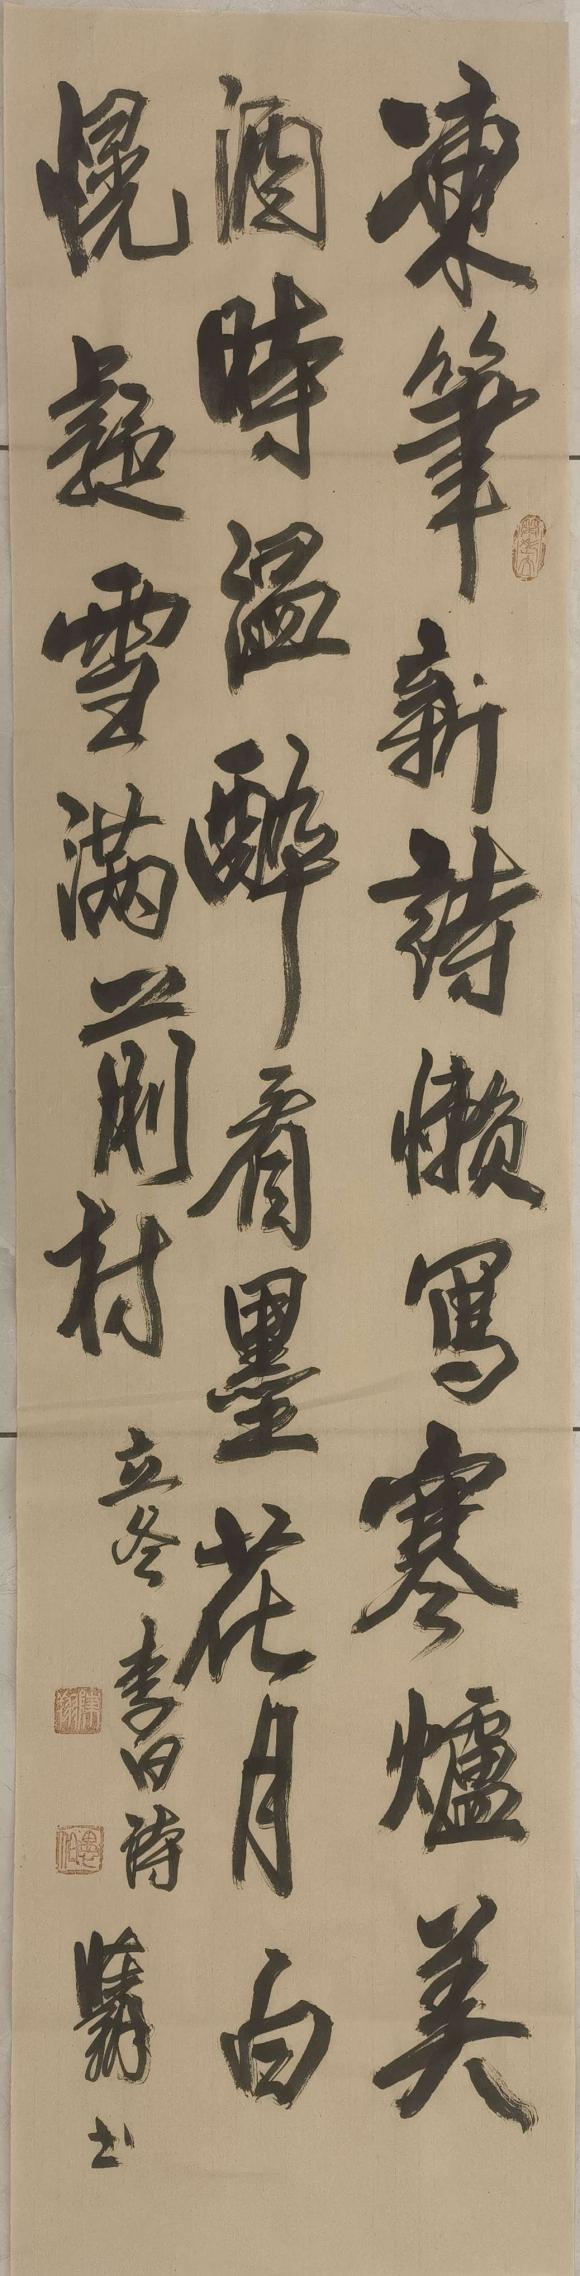 凍筆新詩懶寫寒爐美
酒時溫醉看墨花月白
恍疑雪滿前村
立冬 李白詩
書